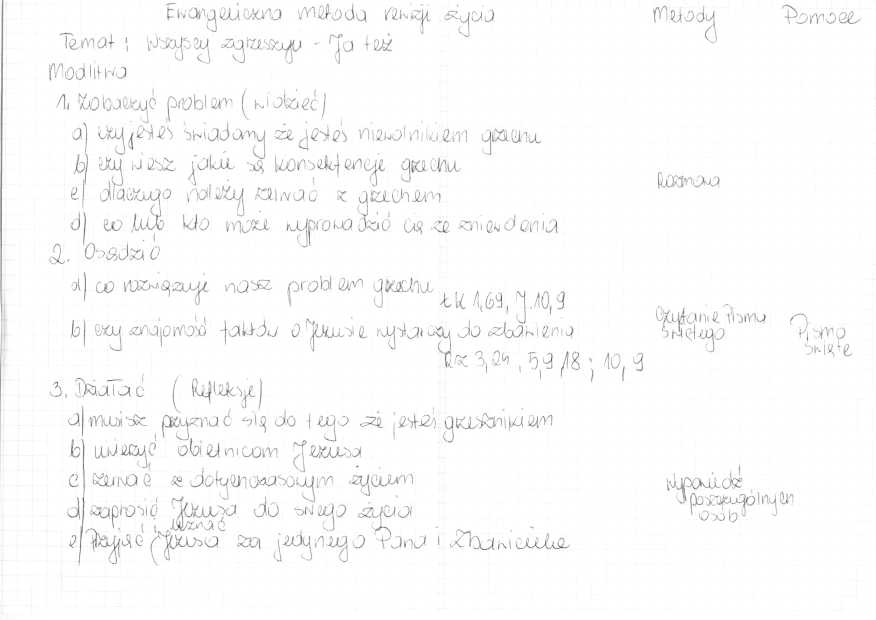 Ewangeliczna metoda rewizji życia Metody Pomoce
Temat: Wszyscy zgrzeszyli - Ja też
Modlitwa
1. Zobaczyć problem (widzieć)
a) czy jesteś świadomy że jesteś niewolnikiem grzechu
b) czy wiesz jakie są konsekfencje grzechu
Rozmowa
c) dlaczego należy zerwać z grzechem
d) co lub kto może wyprowadzić cię ze zniewolenia
2. Osądzić
a) co rozwiązuje nasz problem grzechu
Łk 1,69, J. 10,9
b) czy znajomość faktów o Jezusie wystarczy do zbawienia
Czytanie Pisma
Świętego
Pismo
Święte
Rz 3,24, 5,9,18; 10,9
3. Działać (Refleksje)
a) musisz przyznać się do tego że jesteś grzesznikiem
b) uwierzyć obietnicom Jezusa
c) zerwać z dotychczasowym życiem
d) zaprosić Jezusa do swego życia
Wypowiedź
poszczególnych
osób
uznać
e) Przyjąć (Jezusa za jedynego Pana i Zbawiciela